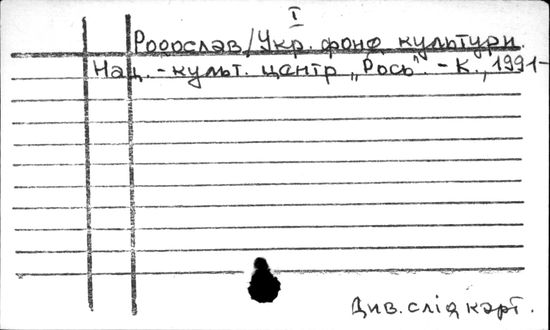 I
Родослав/Укр. фонд культури.
Нац.-культ. центр „Рось". - К., 1991-
Див. слід карт.